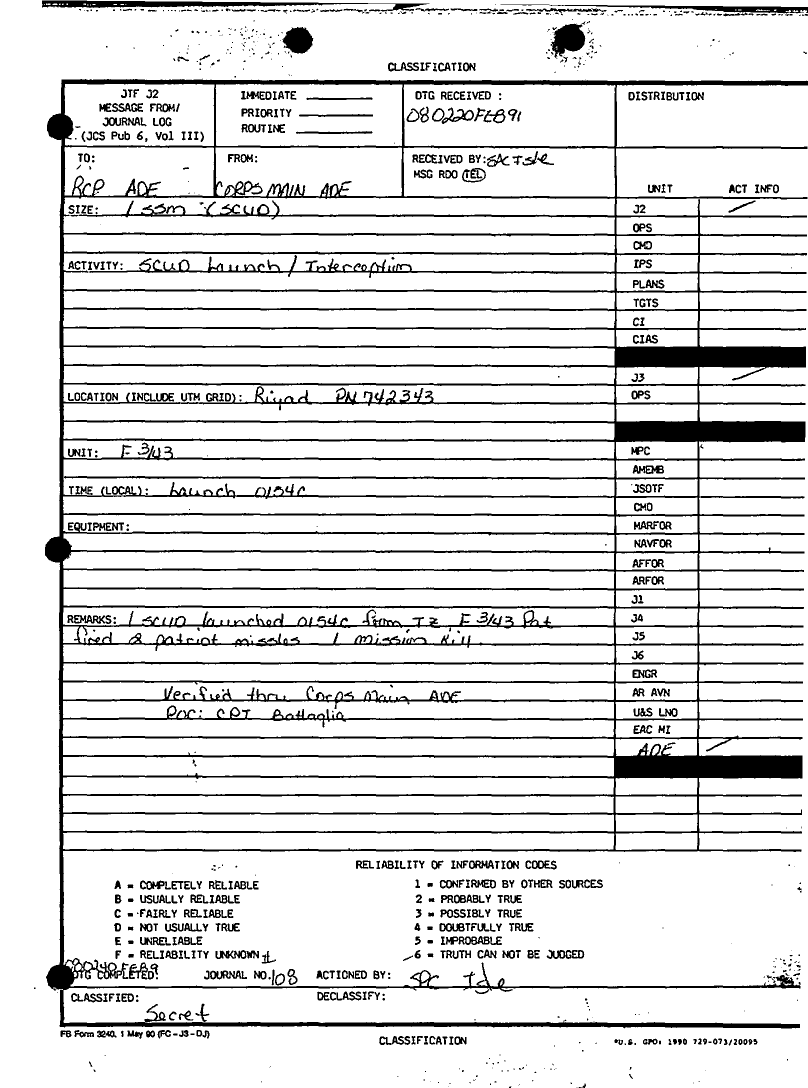 CLASSIFICATION
JTF J2
MESSAGE FROM/
JOURNAL LOG
(JCS Pub 6, Vol III)
IMMEDIATE
PRIORITY
ROUTINE
DTG RECEIVED :
080220FEB91
DISTRIBUTION
TO:
RCP ADE
FROM:
CORPS MAIN ADE
RECEIVED BY:
MSG RDO TEL
UNIT ACT INFO
SIZE: 1 SSM (SCUD)
J2
OPS
CMD
ACTIVITY: SCUD Launch / Interception
IPS
PLANS
TGTS
CI
CIAS
J3
LOCATION (INCLUDE UTM GRID): Riyad PN 742343
OPS
UNIT: F 3/43
MPC
AMEMB
TIME (LOCAL): Launch 0154C
JSOTF
CMD
EQUIPMENT:
MARFOR
NAVFOR
AFFOR
ARFOR
J1
REMARKS: 1 SCUD launched 0154C from IZ F 3/43 Pat
J4
fired 2 patriot missles 1 mission Kill
J5
J6
ENGR
Verified thru Corps Main ADE
AR AVN
POC: CPT Battaglia
U&S LNO
EAC MI
ADE
RELIABILITY OF INFORMATION CODES
A = COMPLETELY RELIABLE
B = USUALLY RELIABLE
C = FAIRLY RELIABLE
D = NOT USUALLY TRUE
E = UNRELIABLE
F = RELIABILITY UNKNOWN
1 = CONFIRMED BY OTHER SOURCES
2 = PROBABLY TRUE
3 = POSSIBLY TRUE
4 = DOUBTFULLY TRUE
5 = IMPROBABLE
6 = TRUTH CAN NOT BE JUDGED
080240FEB9
DTG COMPLETED: JOURNAL NO. 108 ACTIONED BY: SPC
CLASSIFIED: Secret
DECLASSIFY:
FB Form 3240, 1 May 90 (FC-J3-DJ)
CLASSIFICATION
*U.S. GPO: 1990 729-073/20095